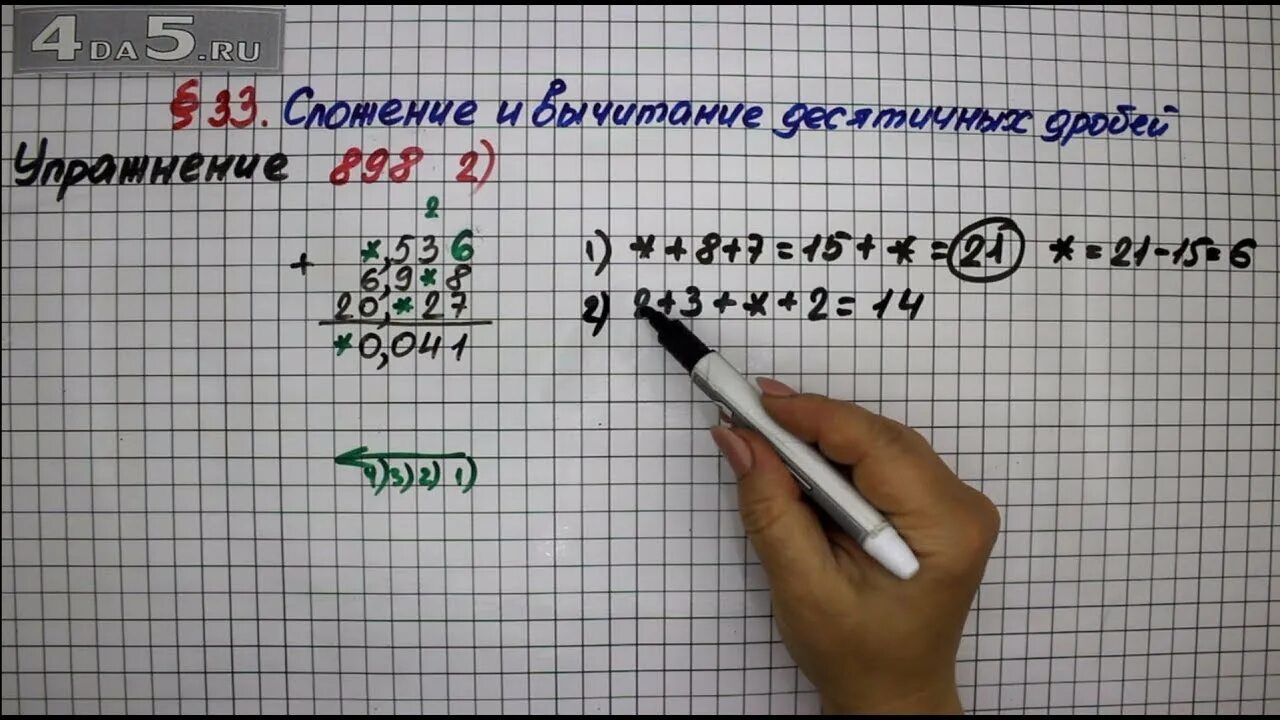 4DA5.RU
§ 33. Сложение и вычитание десятичных дробей
Упражнение 898 2)
2
*,536
+
6,9*8
20,*27
*0,041
1) *+8+7=15+*=21 *=21-15=6
2) 2+3+*+2=14
4)3)2) 1)